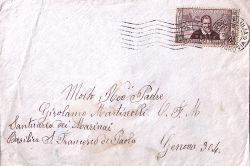 Molto Rev. Padre
Girolamo Martinelli O. F. M
Santuario dei Marinai
Basilica S. Francesco di Paola
Genova 304.